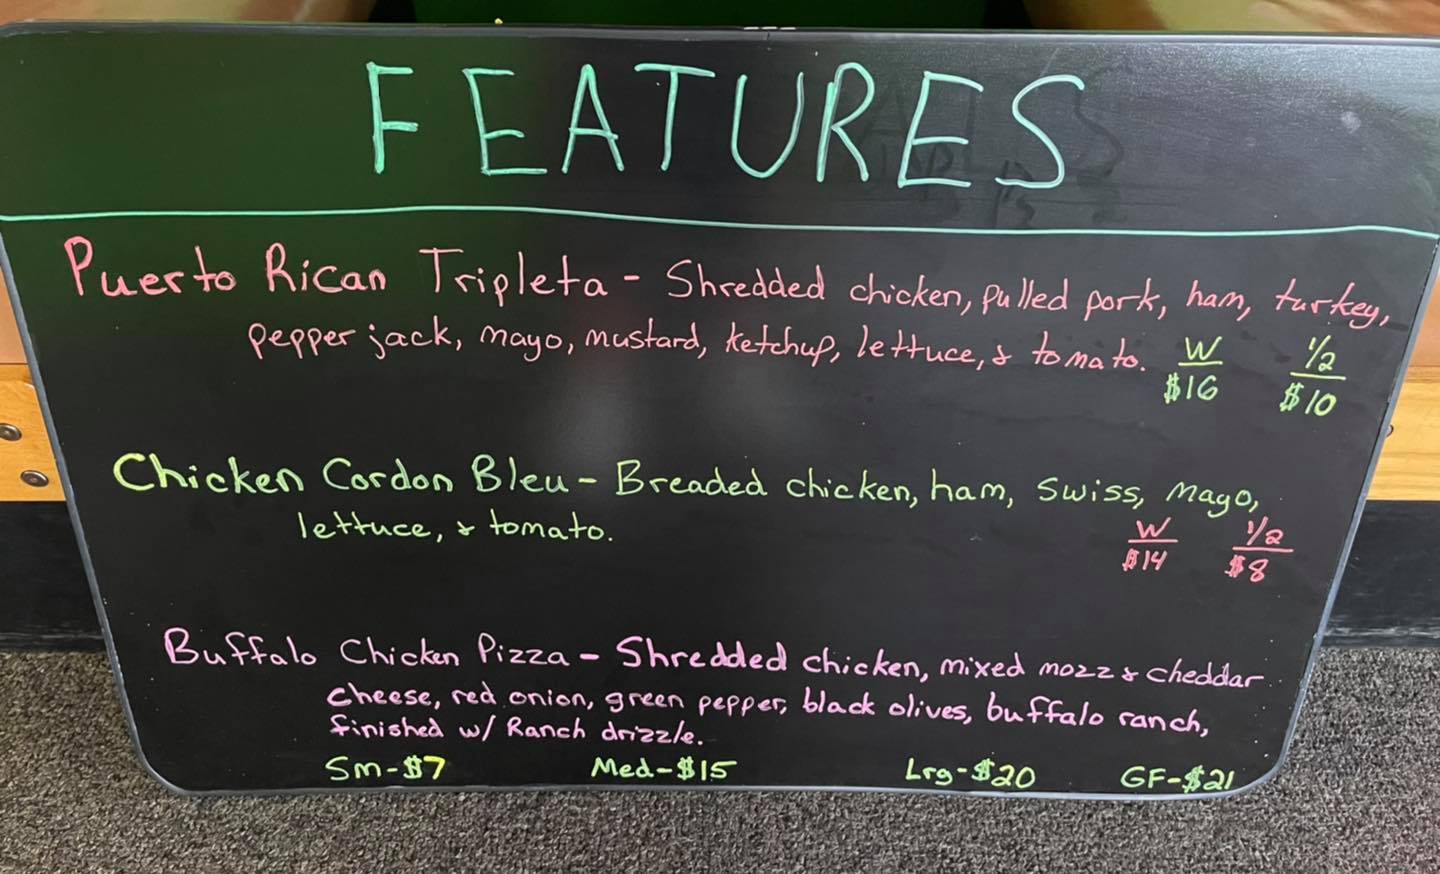 FEATURES
Puerto Rican Tripleta - Shredded chicken, pulled pork, ham, turkey,
pepper jack, mayo, mustard, ketchup, lettuce, & tomato. W 1/2
$16 $10
Chicken Cordon Bleu - Breaded chicken, ham, swiss, mayo,
lettuce, & tomato. W 1/2
$14 $8
Buffalo Chicken Pizza - Shredded chicken, mixed mozz & cheddar
cheese, red onion, green pepper, black olives, buffalo ranch,
finished w/ Ranch drizzle.
Sm-$7 Med-$15 Lrg-$20 GF-$21